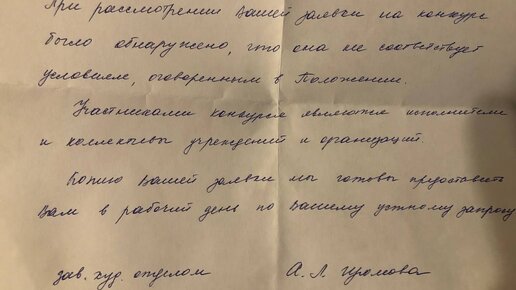 При рассмотрении Вашей заявки на конкурс
было обнаружено, что она не соответствует
условием, оговоренным в Положении.
Участниками конкурса являются исполнители
и коллективы учреждений и организаций.
Копию Вашей заявки мы готовы предоставить
Вам в рабочий день по Вашему устному запросу
зав. худ. отделом А. Л.